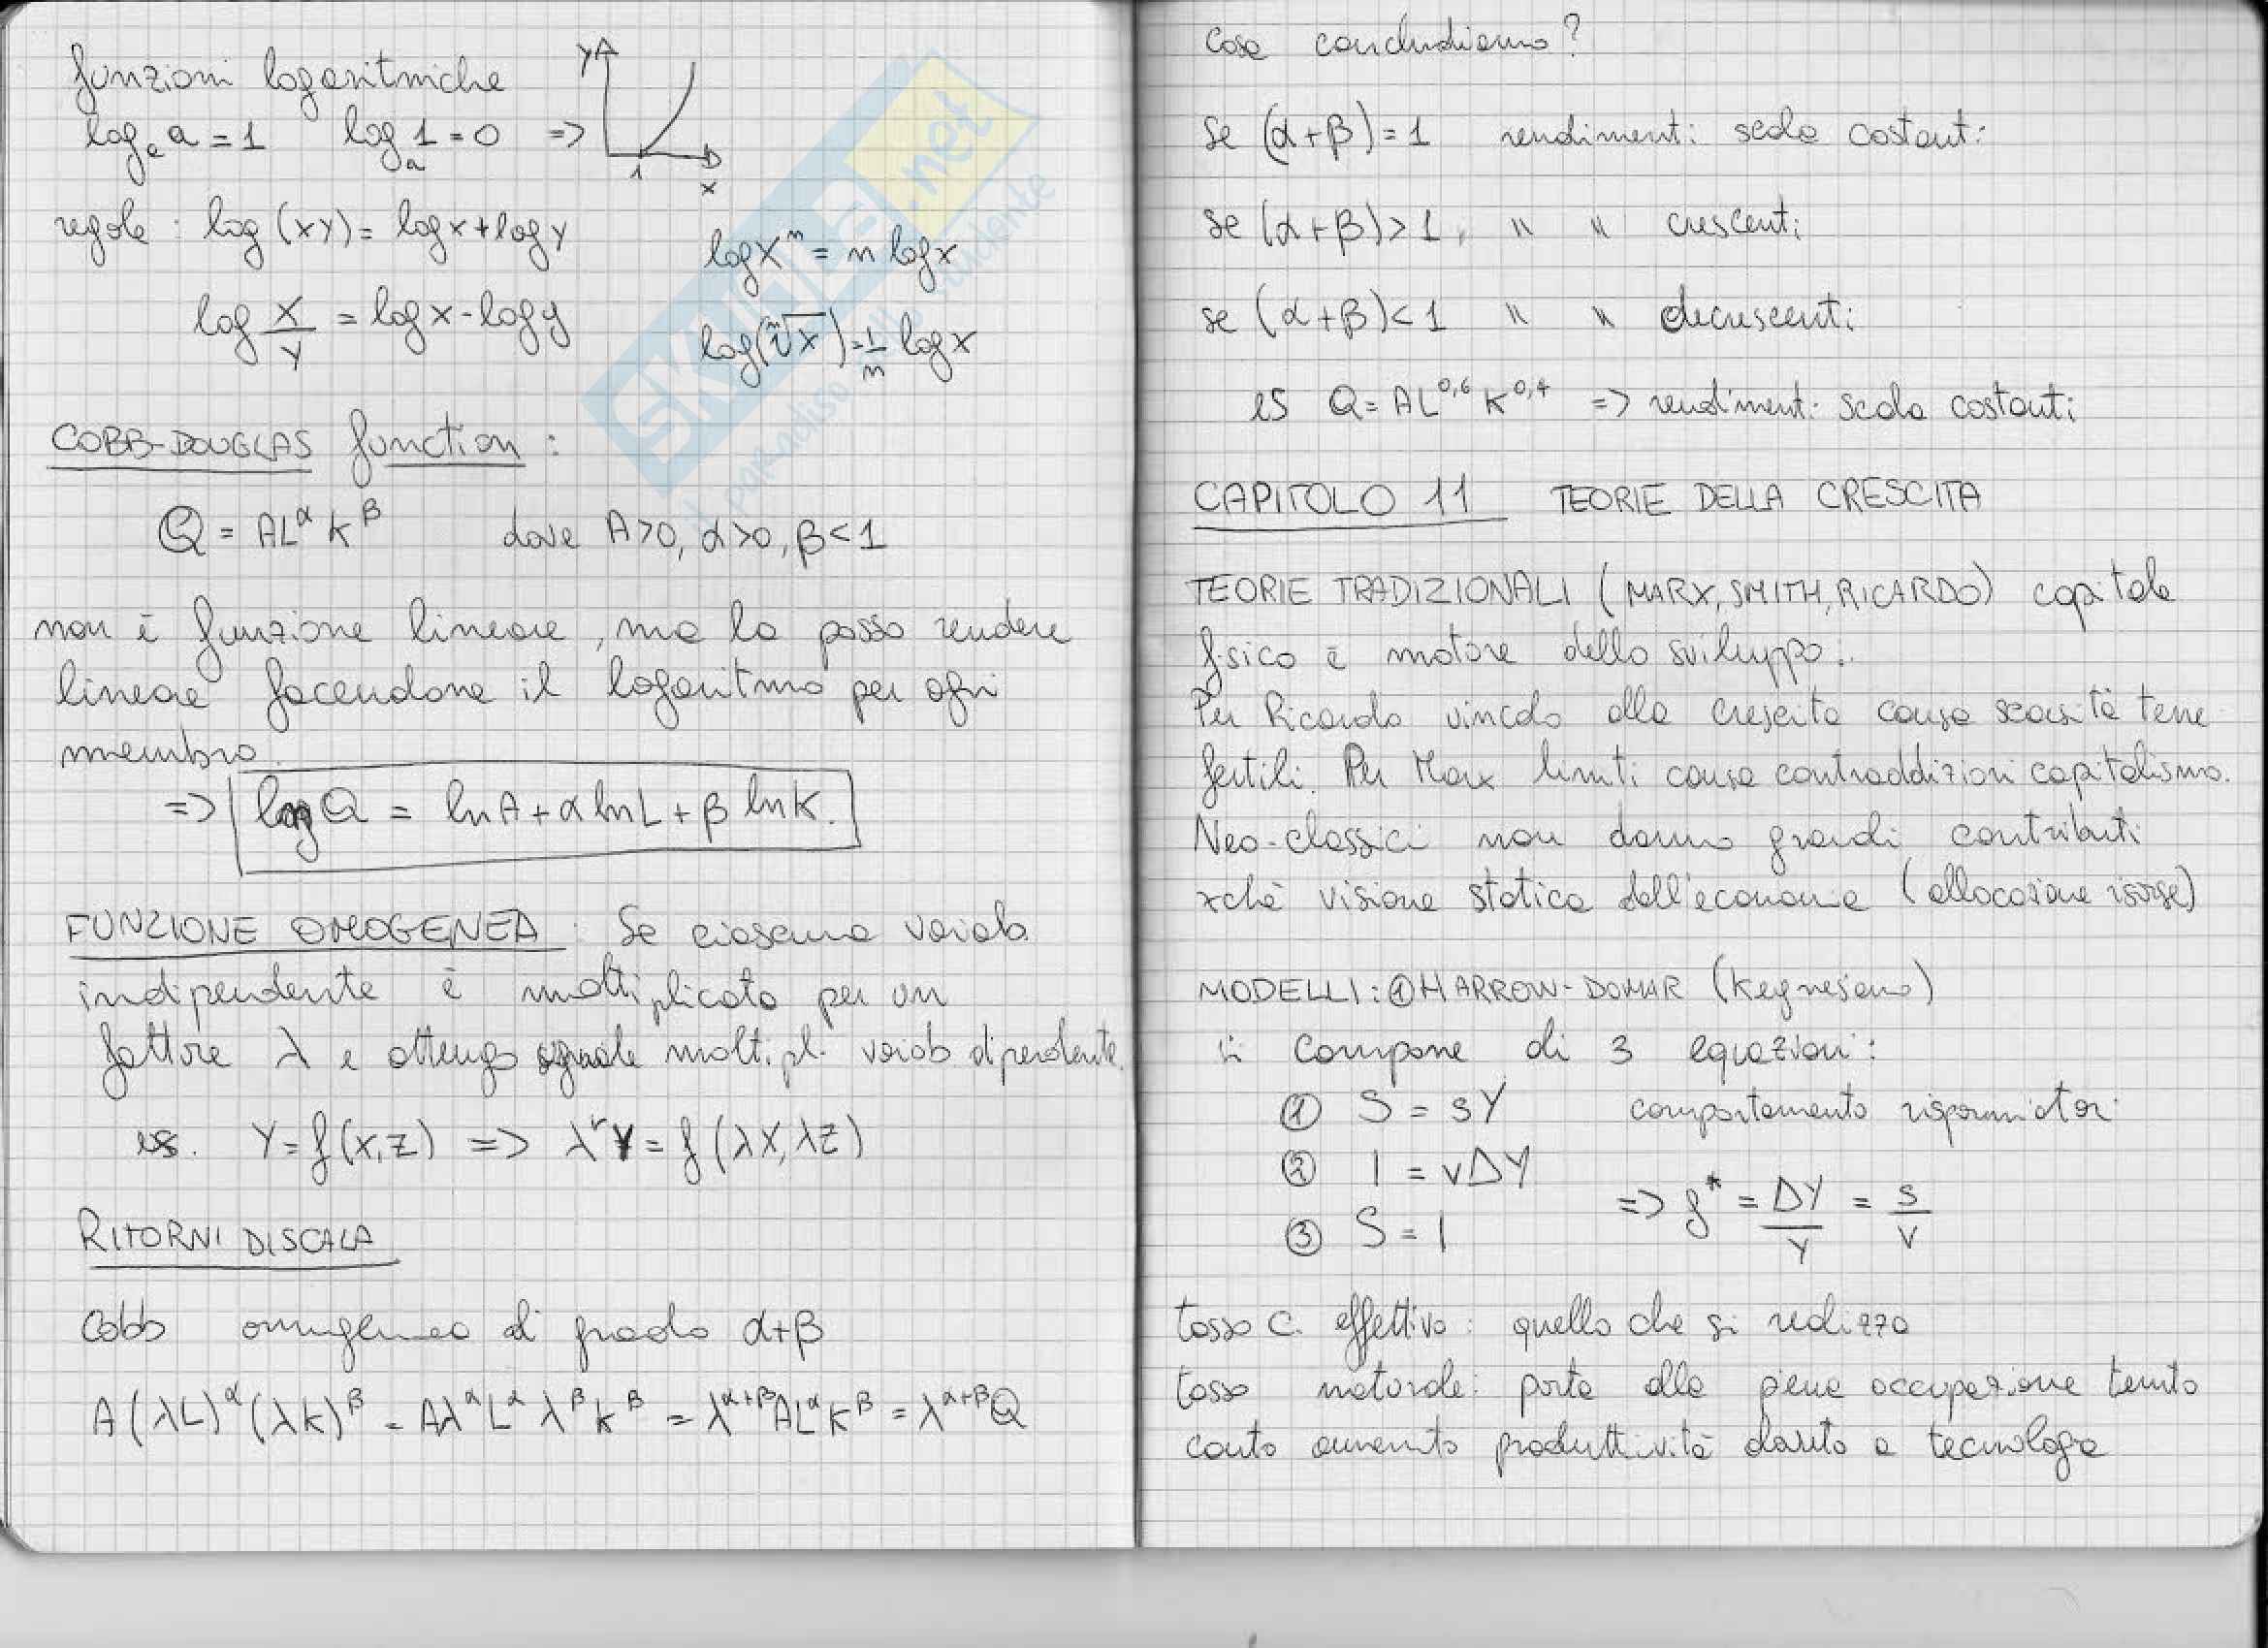 funzioni logaritmiche
logₐ a = 1 logₐ 1 = 0 =>
Y
1
x
regole : log (xy) = logx + logy
log xⁿ = n logx
log x/y = logx - logy
log(ⁿ√x) = 1/n logx
COBB-DOUGLAS function :
Q = AL^α K^β dove A>0, α>0, β<1
non è funzione lineare, ma la posso rendere
lineare facendone il logaritmo per ogni
membro.
=> log Q = lnA + α lnL + β lnK.
FUNZIONE OMOGENEA : Se ciascuna variab.
indipendente è moltiplicata per un
fattore λ e ottengo uguale moltipl. variab. dipendente.
es. Y = f(x,z) => λ^r Y = f(λx, λz)
RITORNI DI SCALA
Cobb omogenea di grado α+β
A(λL)^α (λK)^β = Aλ^α L^α λ^β K^β = λ^(α+β) AL^α K^β = λ^(α+β) Q
Cosa concludiamo?
se (α+β) = 1 rendimenti scala costanti
se (α+β) > 1, " " crescenti
se (α+β) < 1 " " decrescenti
es Q = AL^0,6 K^0,4 => rendimenti scala costanti
CAPITOLO 11 TEORIE DELLA CRESCITA
TEORIE TRADIZIONALI (MARX, SMITH, RICARDO) capitale
fisico è motore dello sviluppo.
Per Ricardo vincolo alla crescita causa scarsità terre
fertili. Per Marx limiti causa contraddizioni capitalismo.
Neo-classici non danno grandi contributi
xchè visione statica dell'economia (allocazione risorse)
MODELLI: ① HARROW-DOMAR (Keynesiano)
si compone di 3 equazioni:
① S = sY comportamento risparmiatori
② I = vΔY
=> g* = ΔY/Y = s/v
③ S = I
tasso c. effettivo : quello che si realizza
tasso naturale: porta alla piena occupazione tenuto
conto aumento produttività dovuto a tecnologia
SKUOLA.net
il paradiso dello studente